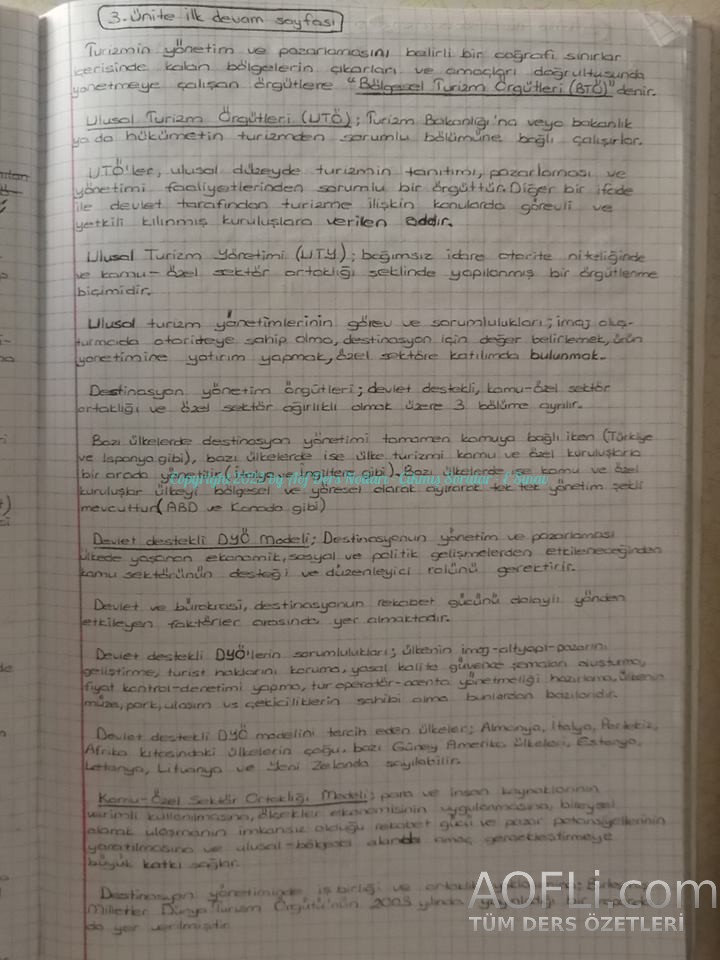 3. ünite ilk devam sayfası
Turizmin yönetim ve pazarlamasını belirli bir coğrafi sınırlar
içerisinde kalan bölgelerin çıkarları ve amaçları doğrultusunda
yönetmeye çalışan örgütlere "Bölgesel Turizm Örgütleri (BTÖ)" denir.
Ulusal Turizm Örgütleri (UTÖ); Turizm Bakanlığı'na veya bakanlık
ya da hükümetin turizmden sorumlu bölümüne bağlı çalışırlar.
UTÖ'ler, ulusal düzeyde turizmin tanıtımı, pazarlaması ve
yönetimi faaliyetlerinden sorumlu bir örgüttür. Diğer bir ifade
ile devlet tarafından turizme ilişkin konularda görevli ve
yetkili kılınmış kuruluşlara verilen addır.
Ulusal Turizm Yönetimi (UTY); bağımsız idare otorite niteliğinde
ve kamu-özel sektör ortaklığı şeklinde yapılanmış bir örgütlenme
biçimidir.
Ulusal turizm yönetimlerinin görev ve sorumlulukları; imaj oluş-
turmada otoriteye sahip olma, destinasyon için değer belirlemek, ürün
yönetimine yatırım yapmak, özel sektöre katılımda bulunmak.
Destinasyon yönetim örgütleri; devlet destekli, kamu-özel sektör
ortaklığı ve özel sektör ağırlıklı olmak üzere 3 bölüme ayrılır.
Bazı ülkelerde destinasyon yönetimi tamamen kamuya bağlı iken (Türkiye
ve İspanya gibi), bazı ülkelerde ise ülke turizmi kamu ve özel kuruluşlarla
bir arada yönetilir (İtalya ve İngiltere gibi). Bazı ülkelerde ise kamu ve özel
kuruluşlar ülkeyi bölgesel ve yöresel olarak ayırarak tek tek yönetim şekli
mevcuttur (ABD ve Kanada gibi)
Devlet destekli DYÖ Modeli; Destinasyonun yönetim ve pazarlaması
ülkede yaşanan ekonomik, sosyal ve politik gelişmelerden etkileneceğinden
kamu sektörünün desteği ve düzenleyici rolünü gerektirir.
Devlet ve bürokrasi, destinasyonun rekabet gücünü dolaylı yönden
etkileyen faktörler arasında yer almaktadır.
Devlet destekli DYÖ'lerin sorumlulukları; ülkenin imaj-altyapı-pazarını
geliştirme, turist haklarını koruma, yasal kalite güvence şemaları oluşturma,
fiyat kontrol-denetimi yapma, tur operatör-acenta yönetmeliği hazırlama, ülkenin
müze, park, ulaşım vs çekiciliklerin sahibi olma bunlardan bazılarıdır.
Devlet destekli DYÖ modelini tercih eden ülkeler; Almanya, İtalya, Portekiz,
Afrika kıtasındaki ülkelerin çoğu, bazı Güney Amerika ülkeleri, Estonya,
Letonya, Lituanya ve Yeni Zelanda sayılabilir.
Kamu-Özel Sektör Ortaklığı Modeli; para ve insan kaynaklarının
verimli kullanılmasına, ölçekler ekonomisinin uygulanmasına, bireysel
olarak ulaşmanın imkansız olduğu rekabet gücü ve pazar potansiyellerinin
yaratılmasına ve ulusal-bölgesel alanda amaç gerçekleştirmeye
büyük katkı sağlar.
Destinasyon yönetiminde iş birliği ve ortaklık Birleşmiş
Milletler Dünya Turizm Örgütü'nün 2003 yılında yayınladığı bir
da yer verilmiştir.
AOFLi.com
TÜM DERS ÖZETLERİ